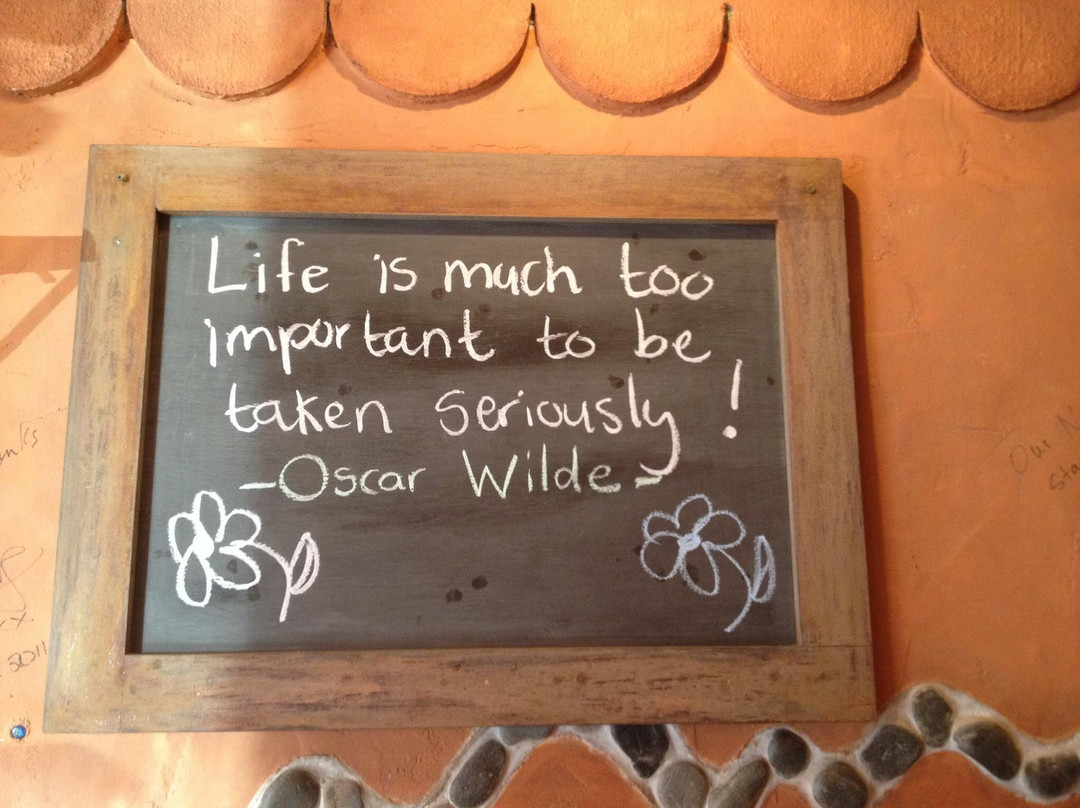 Life is much too
important to be
taken seriously!
-Oscar Wilde-
Our